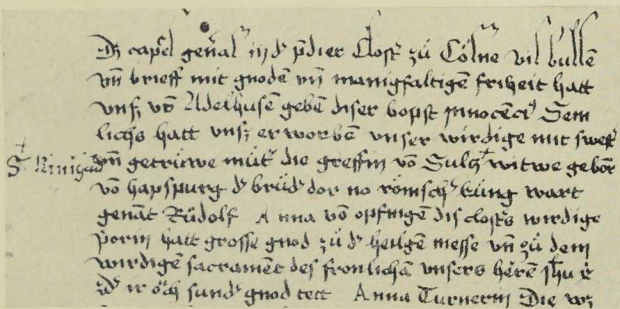 Dz capel gen̄al' in d' p̄dier Clost' zů Cölne vil bullē
vn̄ brieff mit gnoden vn̄ manigfaltigē friheit hatt
vnß vō Adelhusē geben diser bopst Innocēci' Sem
lichs hatt vnß erworben vnser wirdige mit swest'
vn̄ getrüwe můt' die greffin vō Sulcz witwe geborē
S' Kunigūd
vō hapspurg d' brůd' dor no römsch' küng wart
genāt Růdolf Anna vō opfingē dis closters wirdige
p̄orin hatt grosse gnod zů d' heilgē messe vn̄ zů dem
wirdigē sacramēt des fronlichā vnsers herē ihū
d' ir öch sund' gnod tett Anna Turnerin Die wz